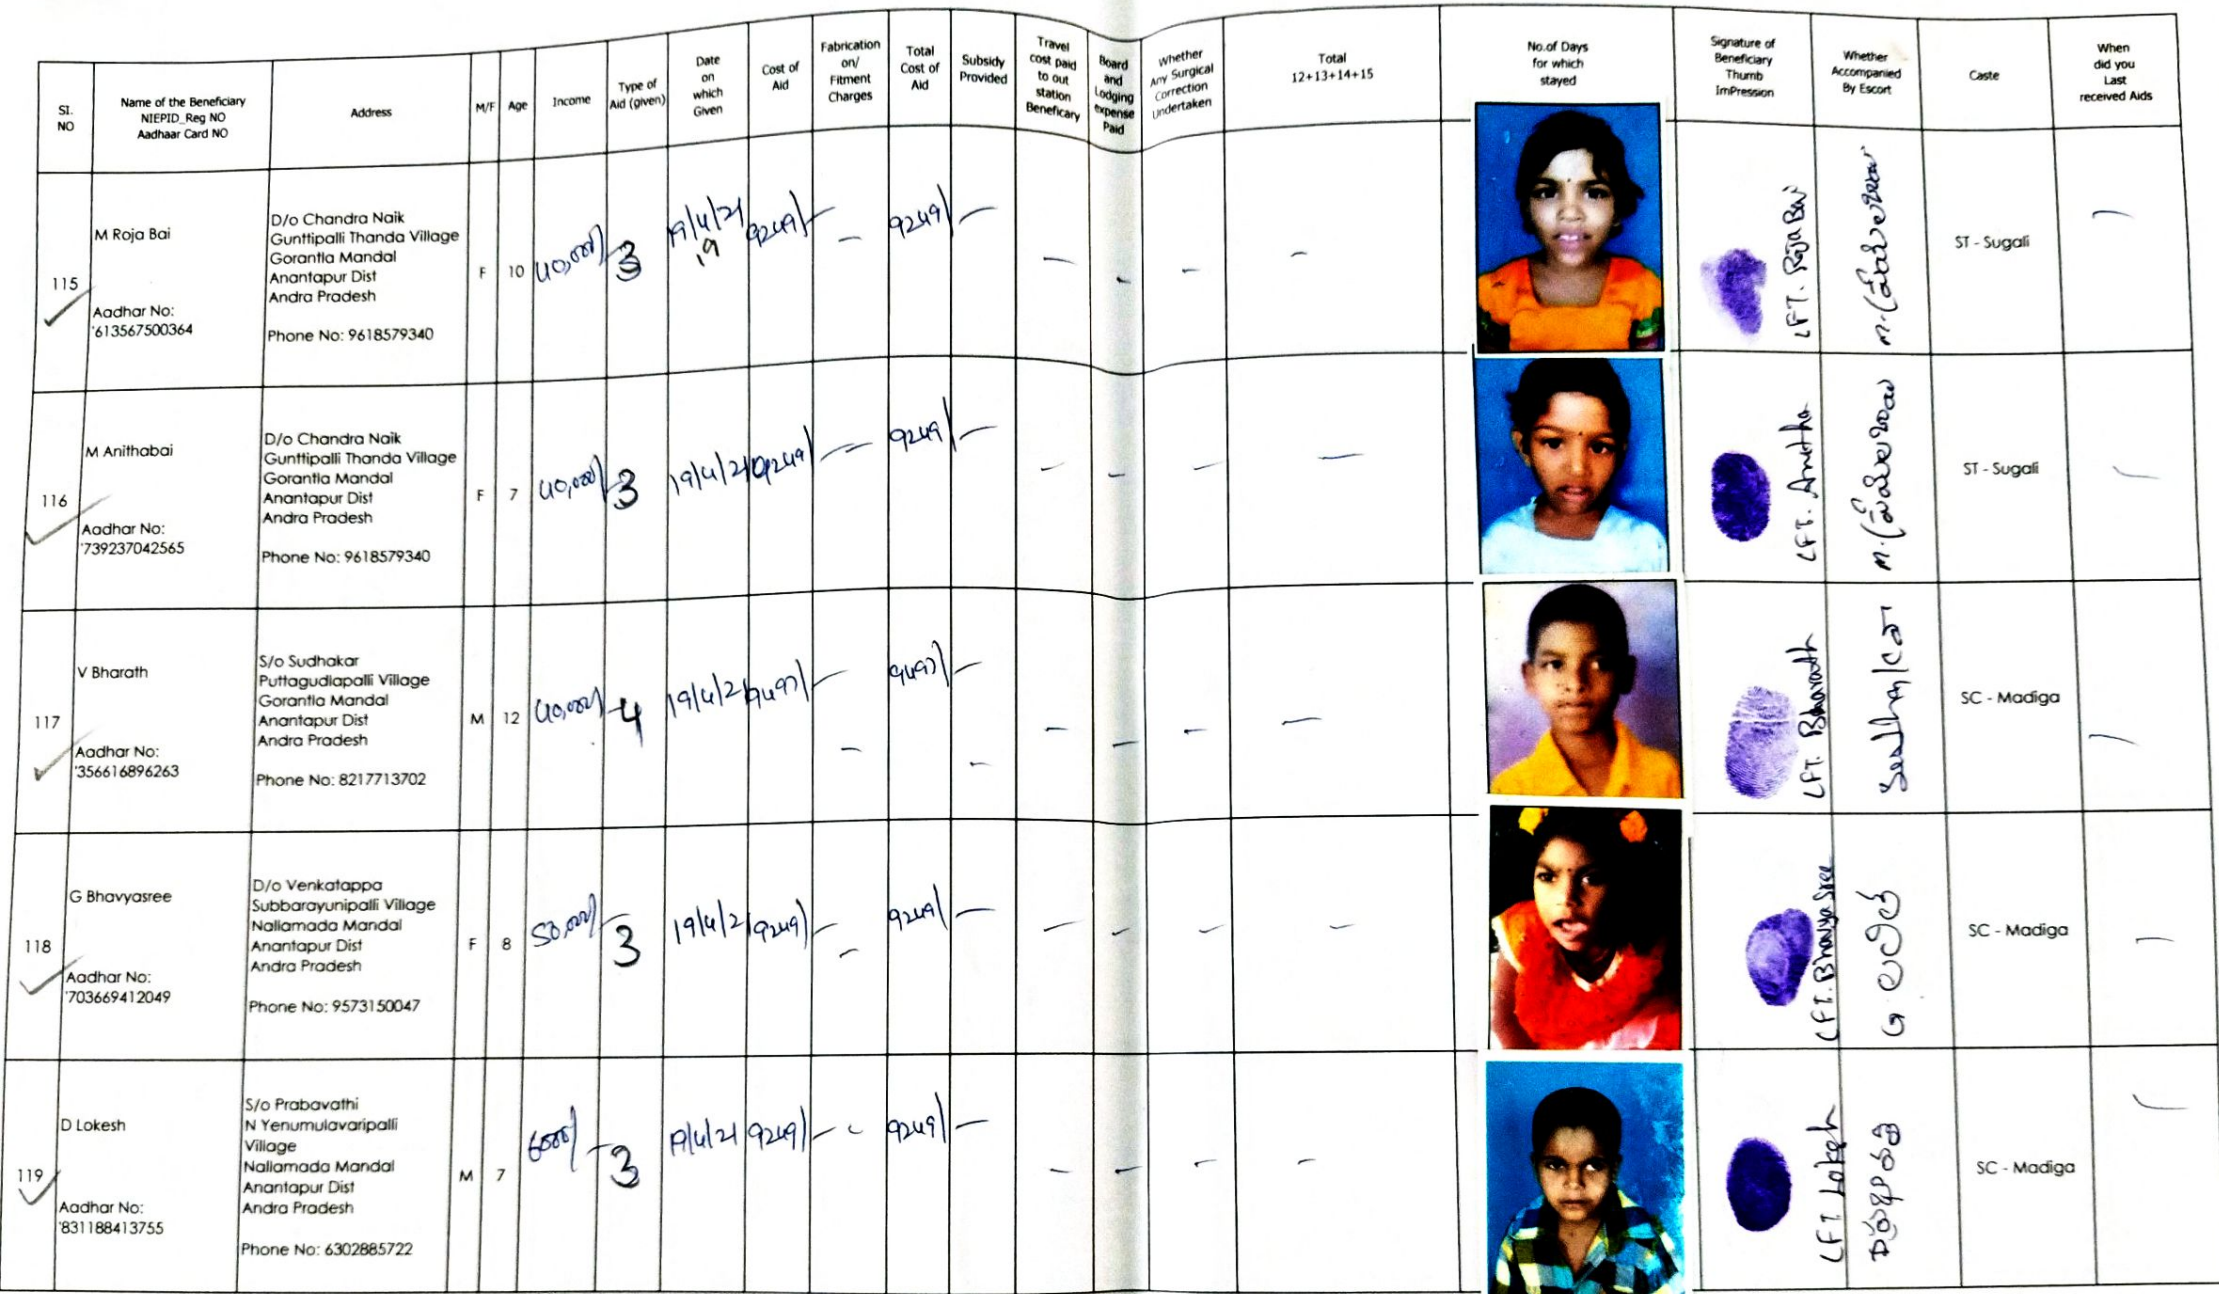 SI. NO
Name of the Beneficiary
NIEPID_Reg NO
Aadhaar Card NO
Address
M/F
Age
Income
Type of
Aid (given)
Date
on
which
Given
Cost of
Aid
Fabrication
on/
Fitment
Charges
Total
Cost of
Aid
Subsidy
Provided
Travel
cost paid
to out
station
Beneficary
Board
and
Lodging
expense
Paid
Whether
Any Surgical
Correction
Undertaken
Total
12+13+14+15
No.of Days
for which
stayed
Signature of
Beneficiary
Thumb
ImPression
Whether
Accompanied
By Escort
Caste
When
did you
Last
received Aids
115
M Roja Bai
Aadhar No:
'613567500364
D/o Chandra Naik
Gunttipalli Thanda Village
Gorantla Mandal
Anantapur Dist
Andra Pradesh
Phone No: 9618579340
F
10
40,000/-
3
19/4/21
9249/-
9249/-
LFT. Roja Bai
ST - Sugali
116
M Anithabai
Aadhar No:
'739237042565
D/o Chandra Naik
Gunttipalli Thanda Village
Gorantla Mandal
Anantapur Dist
Andra Pradesh
Phone No: 9618579340
F
7
40,000/-
3
19/4/21
9249/-
9249/-
LFT. Anitha
ST - Sugali
117
V Bharath
Aadhar No:
'356616896263
S/o Sudhakar
Puttagudlapalli Village
Gorantla Mandal
Anantapur Dist
Andra Pradesh
Phone No: 8217713702
M
12
40,000/-
4
19/4/21
9497/-
9497/-
LFT. Bharath
SC - Madiga
118
G Bhavyasree
Aadhar No:
'703669412049
D/o Venkatappa
Subbarayunipalli Village
Nallamada Mandal
Anantapur Dist
Andra Pradesh
Phone No: 9573150047
F
8
50,000/-
3
19/4/21
9249/-
9249/-
LFT. Bhavya Sree
G. లలిత
SC - Madiga
119
D Lokesh
Aadhar No:
'831188413755
S/o Prabavathi
N Yenumulavaripalli
Village
Nallamada Mandal
Anantapur Dist
Andra Pradesh
Phone No: 6302885722
M
7
3
19/4/21
9249/-
9249/-
LFT Lokesh
SC - Madiga